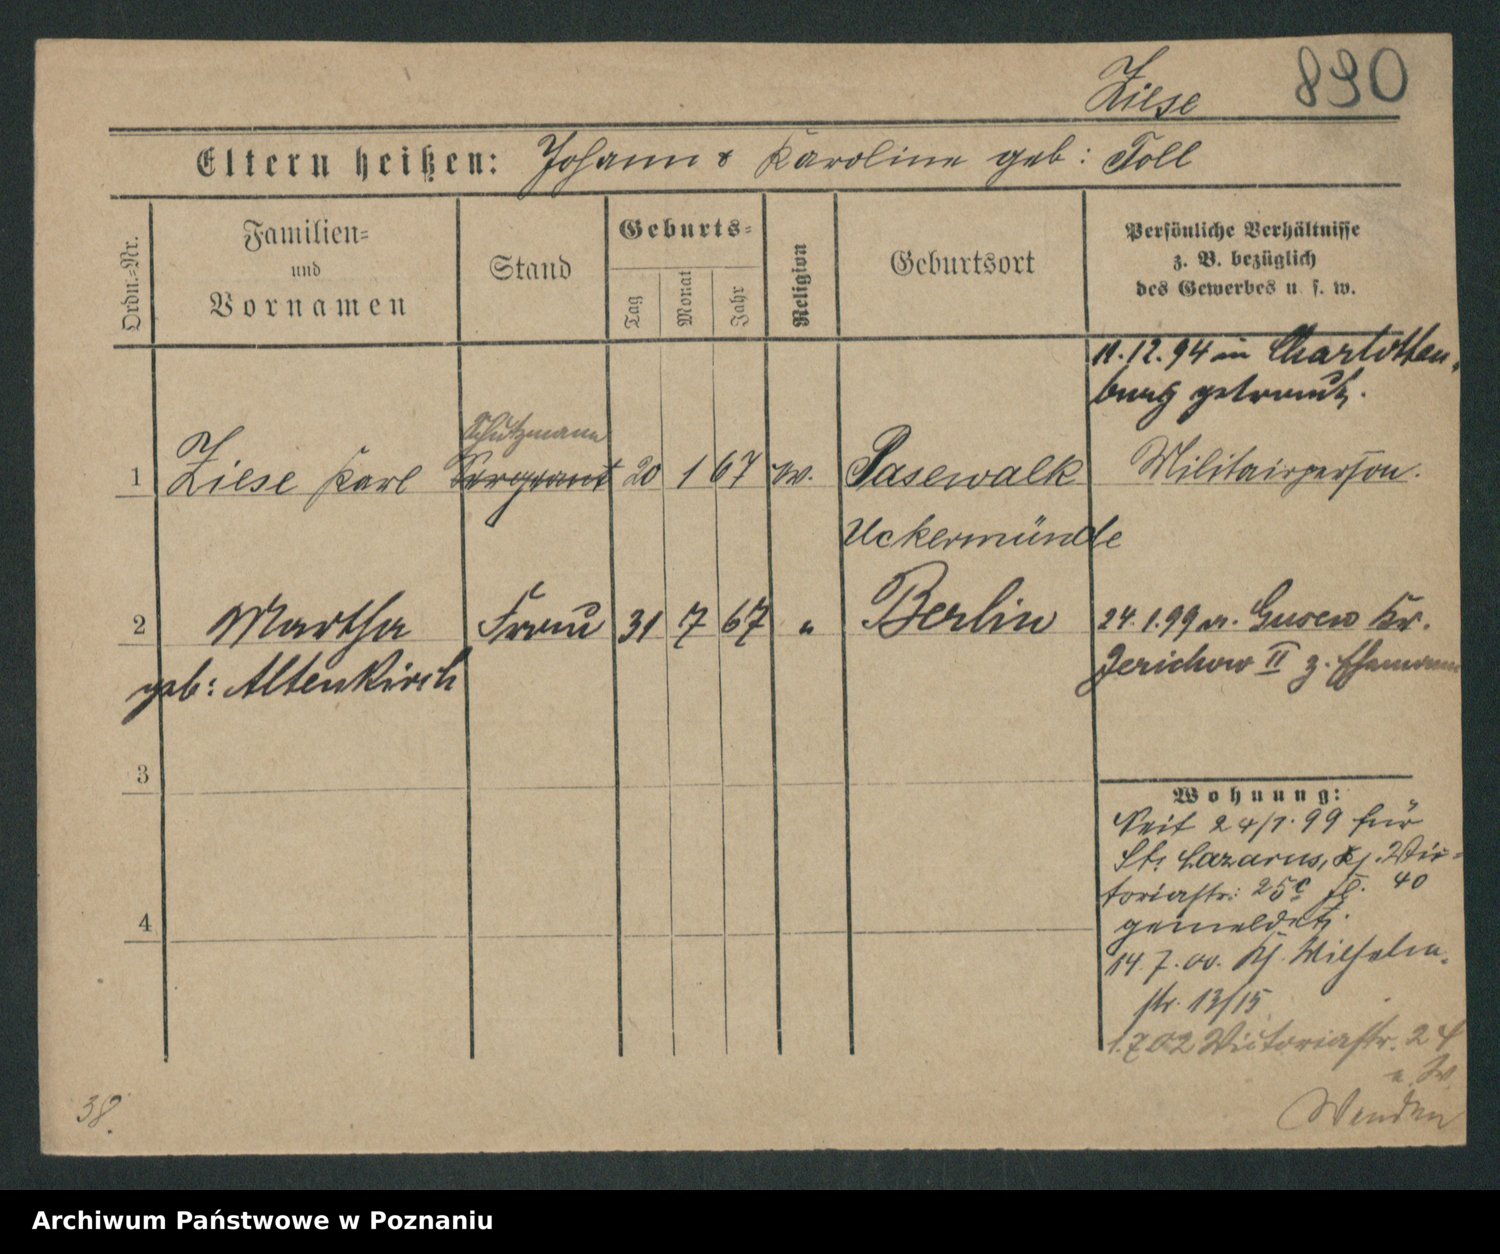 Ziese 890
Eltern heißen: Johann & Karoline geb: Toll
Ordn.-Nr.
Familien-
und
Vornamen
Stand
Geburts-
Tag
Monat
Jahr
Religion
Geburtsort
Persönliche Verhältnisse
z. B. bezüglich
des Gewerbes u. s. w.
11.12.94 in Charlotten-
burg getraut.
Schutzmann
1 Ziese Karl Sergeant 20 1 67 ev. Pasewalk Militairperson.
Uckermünde
2 Martha Frau 31 7 67 " Berlin 24.1.99 v. Gusen Kr.
geb: Altenkirch Jerichow II z. Ehemann
3
Wohnung:
Seit 24/1.99 für
St. Lazarus, Vic-
toriastr: 25c 40
4 gemeldet.
14.7.00. Wilhelm-
str. 13/15
1.7.02 Victoriastr. 24
Wenden
38.